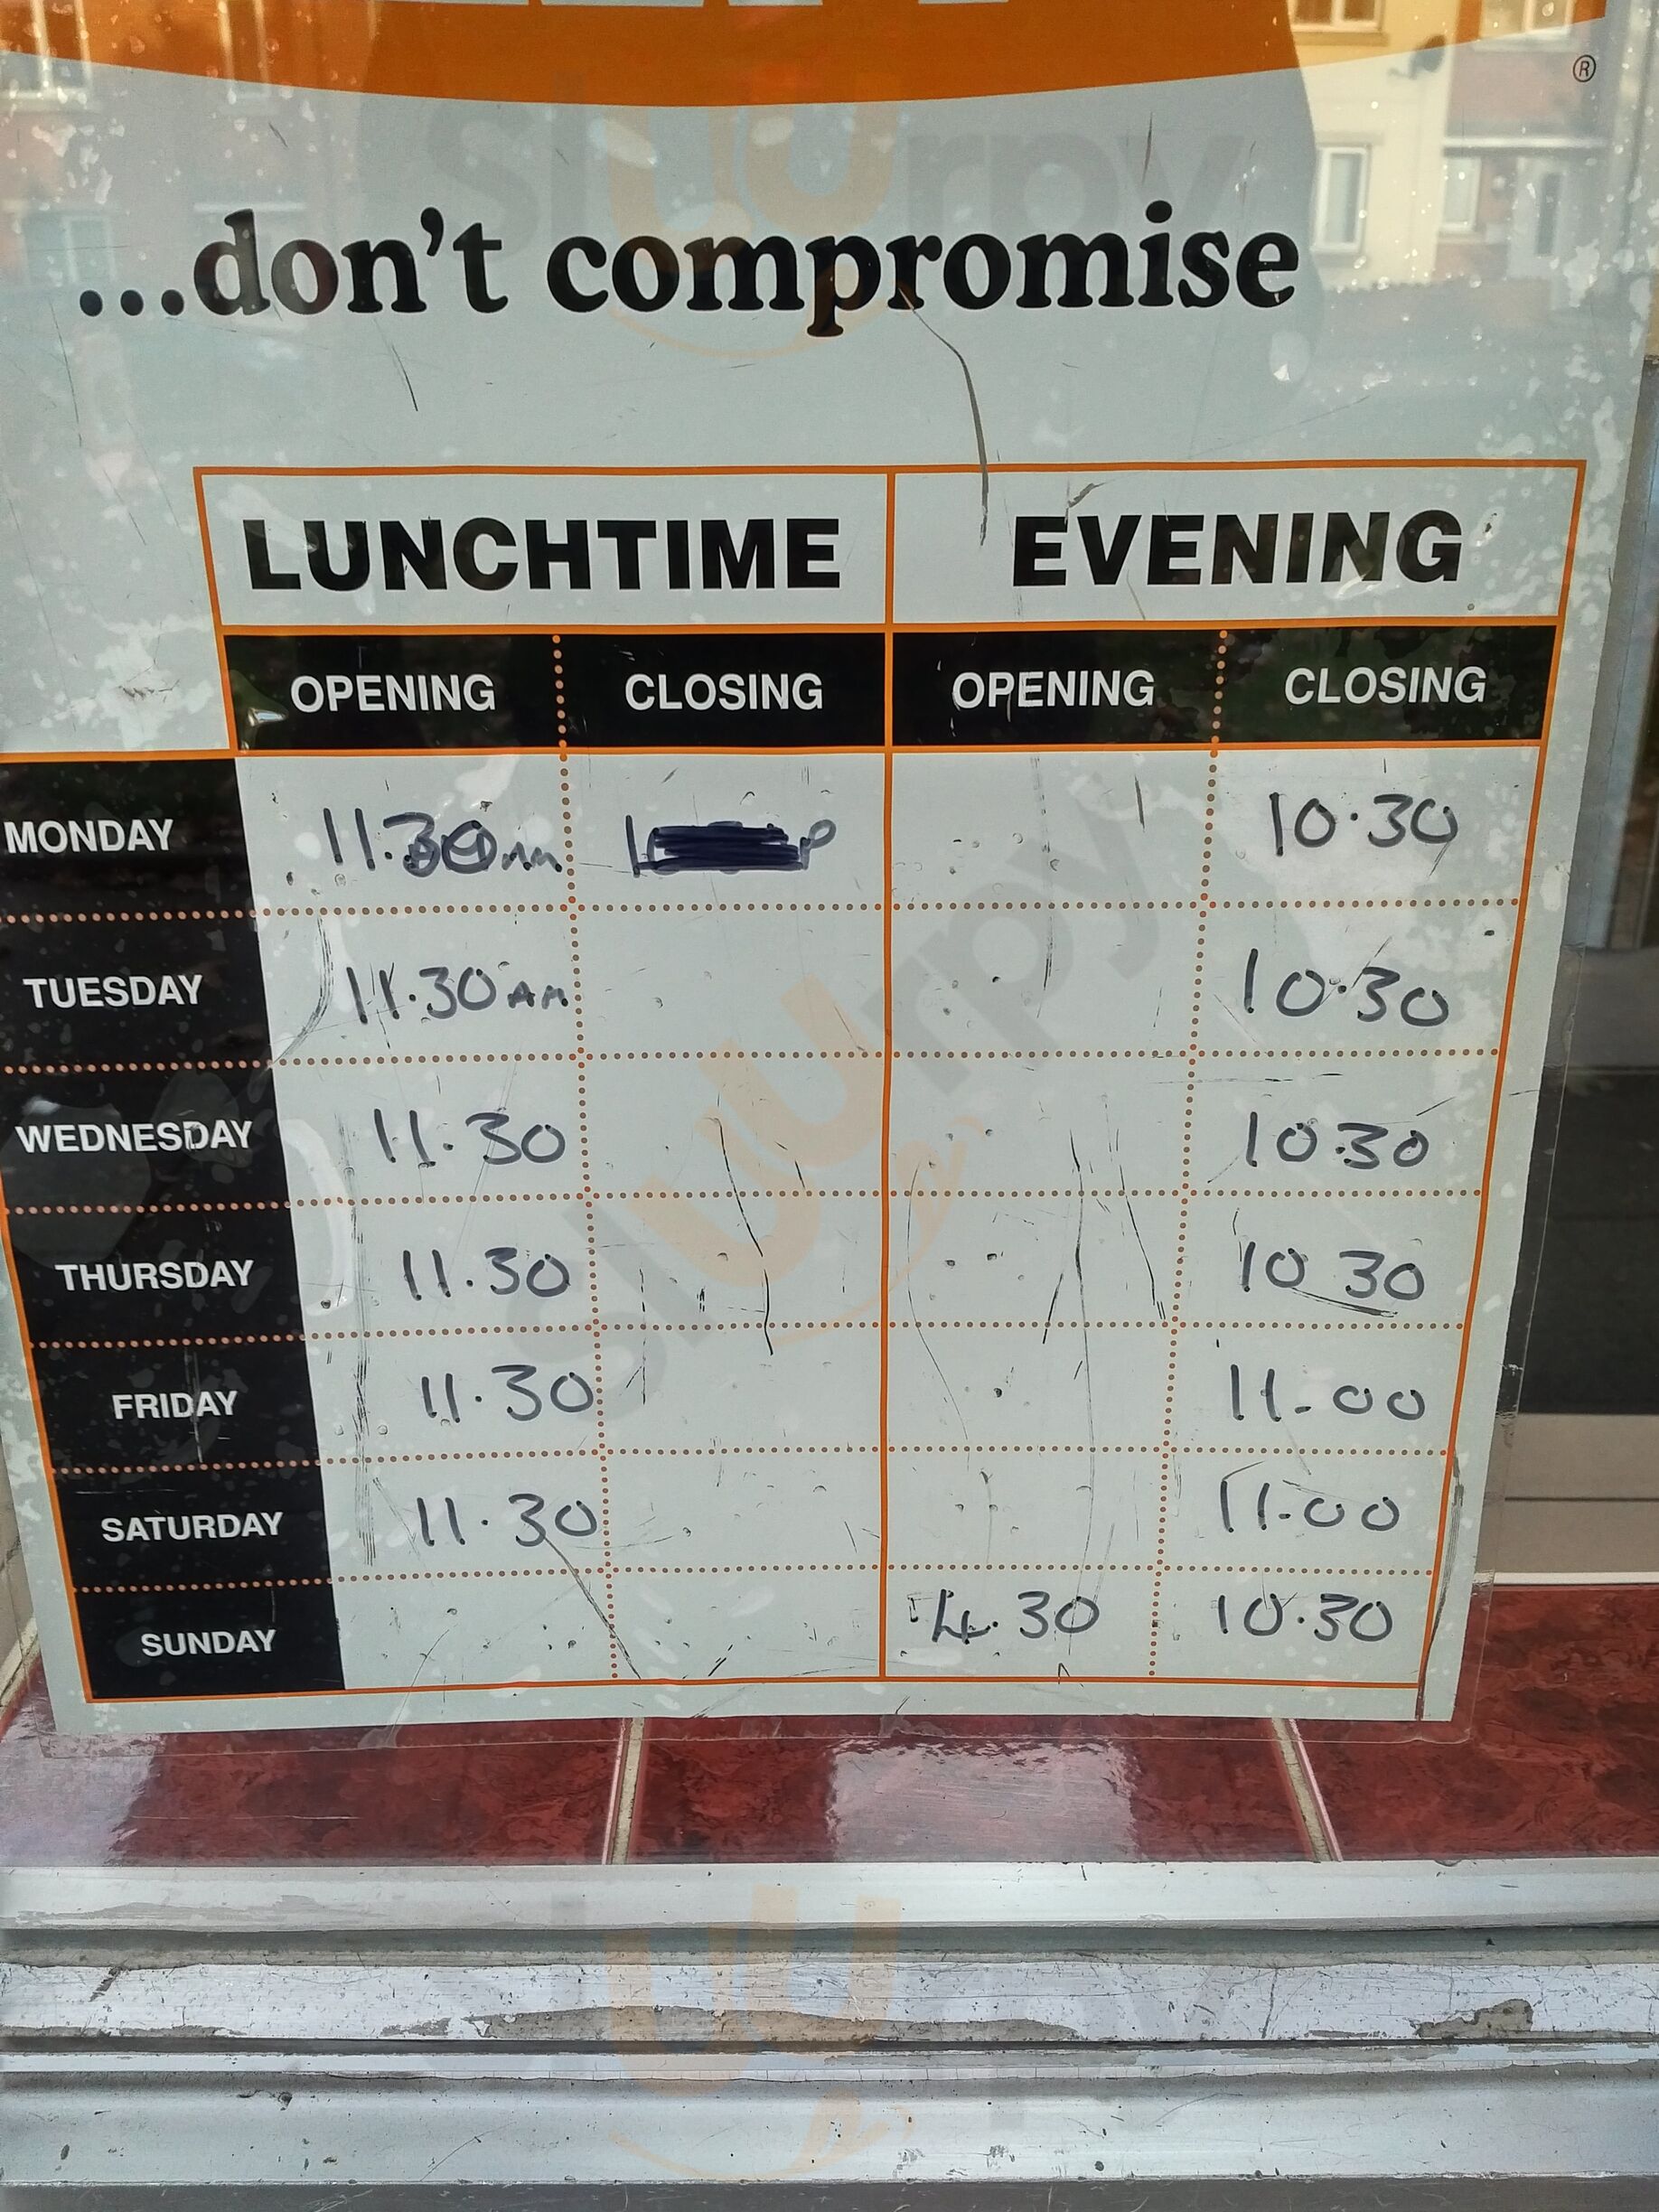 ®
...don't compromise
LUNCHTIME EVENING
OPENING CLOSING OPENING CLOSING
MONDAY 11.30am 10.30
TUESDAY 11.30AM 10.30
WEDNESDAY 11.30 10.30
THURSDAY 11.30 10 30
FRIDAY 11.30 11.00
SATURDAY 11.30 11.00
SUNDAY 4.30 10.30
sluurpy
sluurpy
sluurpy